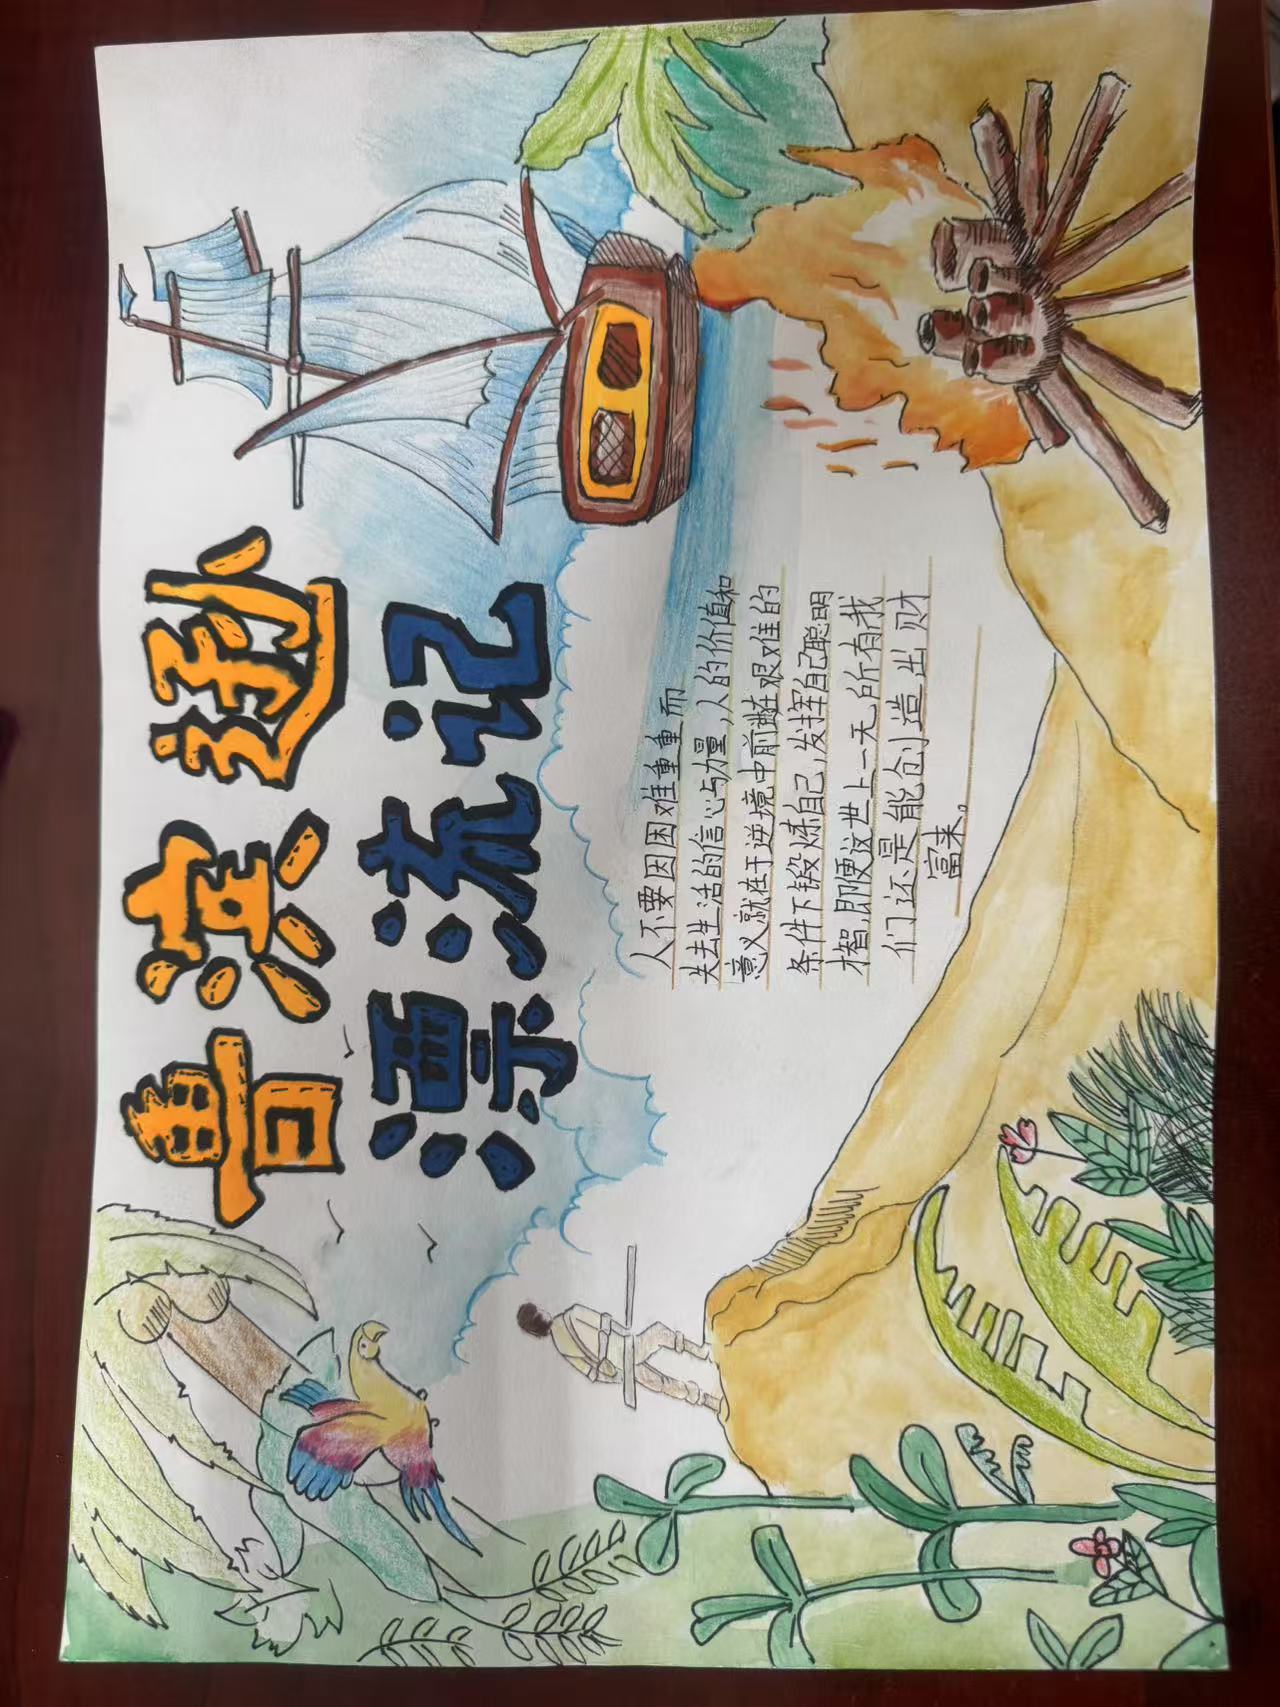 鲁滨逊
漂流记
人不要因困难重重而
失去生活的信心与力量,人的价值和
意义就在于逆境中前进在艰难的
条件下锻炼自己,发挥自己聪明
才智,即便这世上一无所有我
们还是能创造出财
富来。